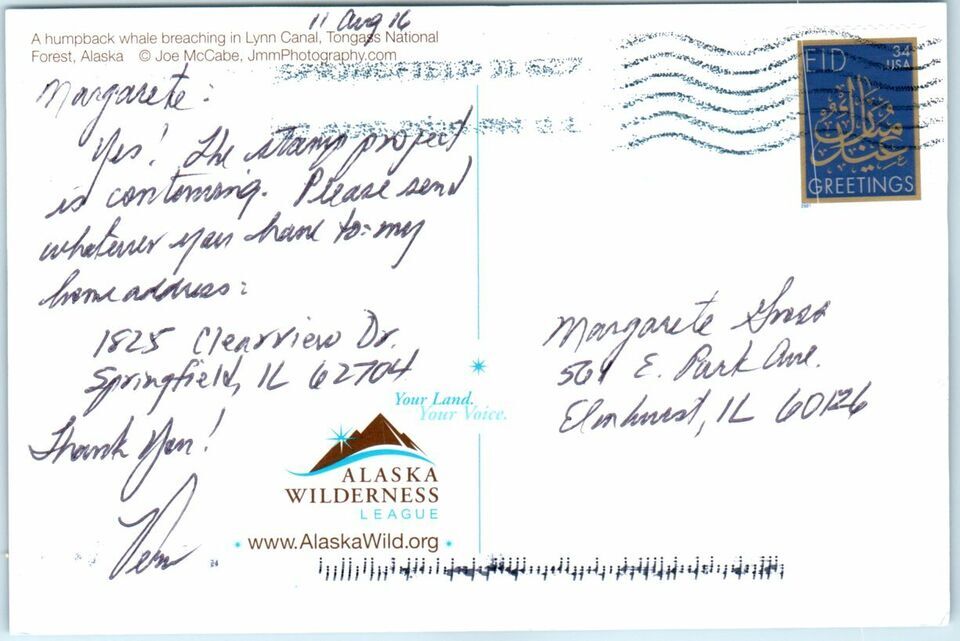 11 Aug 16
A humpback whale breaching in Lynn Canal, Tongass National
Forest, Alaska © Joe McCabe, JmmPhotography.com
SPRINGFIELD IL 627
Margarete:
Yes! The stamp project
is continuing. Please send
whatever you have to my
home address:
1825 Clearview Dr.
Springfield, IL 62704
Thank You!
EID
34
USA
عيد مبارك
GREETINGS
2001
Margarete Gross
561 E. Park Ave.
Elmhurst, IL 60126
Your Land.
Your Voice.
ALASKA
WILDERNESS
LEAGUE
www.AlaskaWild.org
24